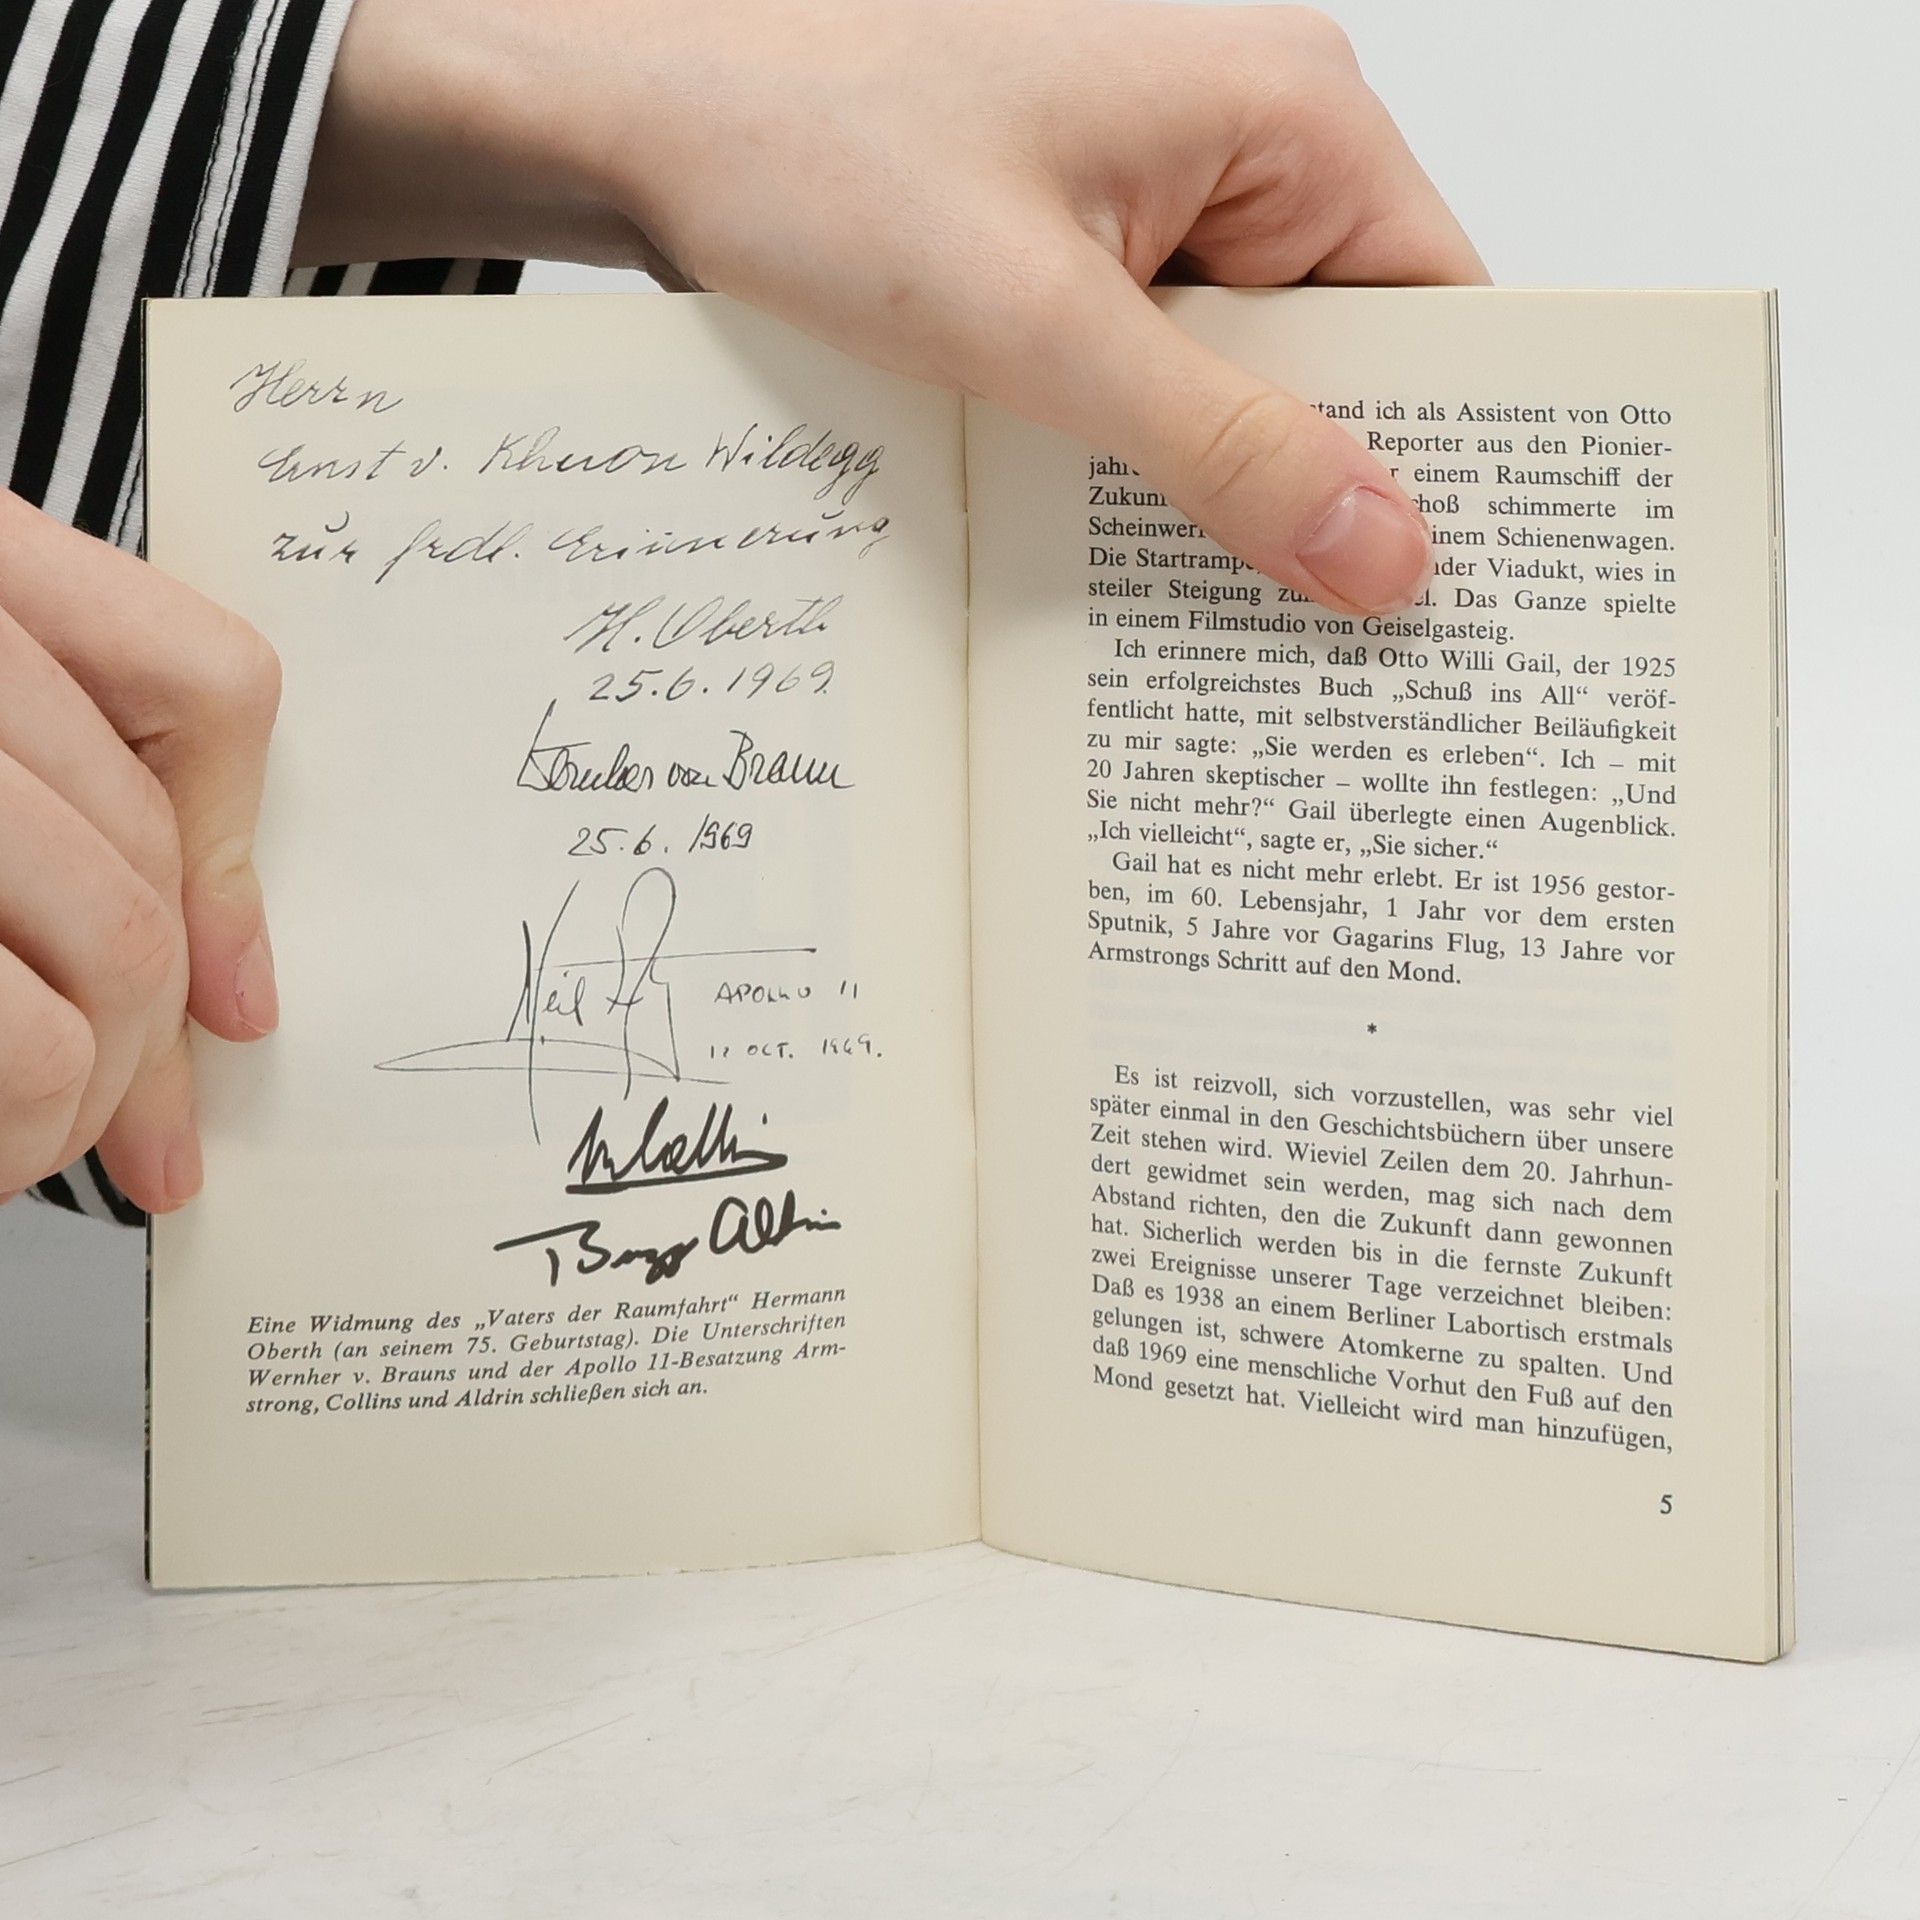 Herrn
Ernst v. Khuon Wildegg
zur frdl. Erinnerung
H. Oberth
25.6.1969.
Wernher von Braun
25.6.1969
Neil
APOLLO 11
OCT. 1969.
M Collins
Buzz Aldrin
Eine Widmung des „Vaters der Raumfahrt“ Hermann
Oberth (an seinem 75. Geburtstag). Die Unterschriften
Wernher v. Brauns und der Apollo 11-Besatzung Arm-
strong, Collins und Aldrin schließen sich an.
ich als Assistent von Otto
Reporter aus den Pionier-
einem Raumschiff der
schimmerte im
Schienenwagen.
Die Viadukt, wies in
steiler Steigung Das Ganze spielte
in einem Filmstudio von Geiselgasteig.
Ich erinnere mich, daß Otto Willi Gail, der 1925
sein erfolgreichstes Buch „Schuß ins All“ veröf-
fentlicht hatte, mit selbstverständlicher Beiläufigkeit
zu mir sagte: „Sie werden es erleben“. Ich – mit
20 Jahren skeptischer – wollte ihn festlegen: „Und
Sie nicht mehr?“ Gail überlegte einen Augenblick.
„Ich vielleicht“, sagte er, „Sie sicher.“
Gail hat es nicht mehr erlebt. Er ist 1956 gestor-
ben, im 60. Lebensjahr, 1 Jahr vor dem ersten
Sputnik, 5 Jahre vor Gagarins Flug, 13 Jahre vor
Armstrongs Schritt auf den Mond.
*
Es ist reizvoll, sich vorzustellen, was sehr viel
später einmal in den Geschichtsbüchern über unsere
Zeit stehen wird. Wieviel Zeilen dem 20. Jahrhun-
dert gewidmet sein werden, mag sich nach dem
Abstand richten, den die Zukunft dann gewonnen
hat. Sicherlich werden bis in die fernste Zukunft
zwei Ereignisse unserer Tage verzeichnet bleiben:
Daß es 1938 an einem Berliner Labortisch erstmals
gelungen ist, schwere Atomkerne zu spalten. Und
daß 1969 eine menschliche Vorhut den Fuß auf den
Mond gesetzt hat. Vielleicht wird man hinzufügen,
5